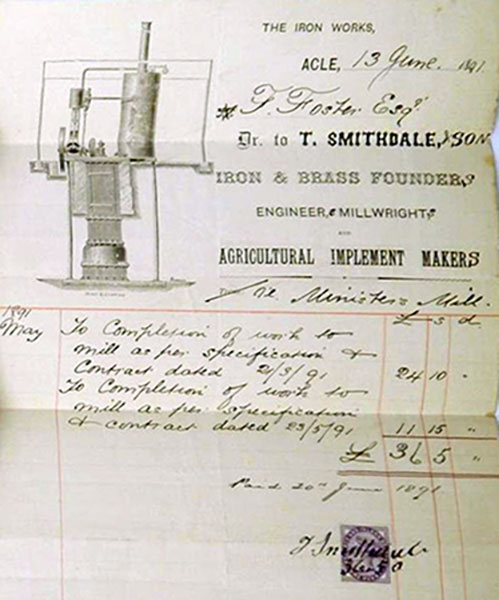 THE IRON WORKS,
ACLE, 13 June. 1891
F. Foster Esqr
Dr. to T. SMITHDALE, & SON
IRON & BRASS FOUNDERS
ENGINEERS & MILLWRIGHTS
AND
AGRICULTURAL IMPLEMENT MAKERS
Re Ministers Mill.
£ s d
1891
May To Completion of work to
mill as per specification &
Contract dated 2/3/91 24 10 "
To Completion of work to
mill as per specification
& contract dated 23/5/91 11 15 "
£ 36 5 "
Paid 20th June 1891
T Smithdale